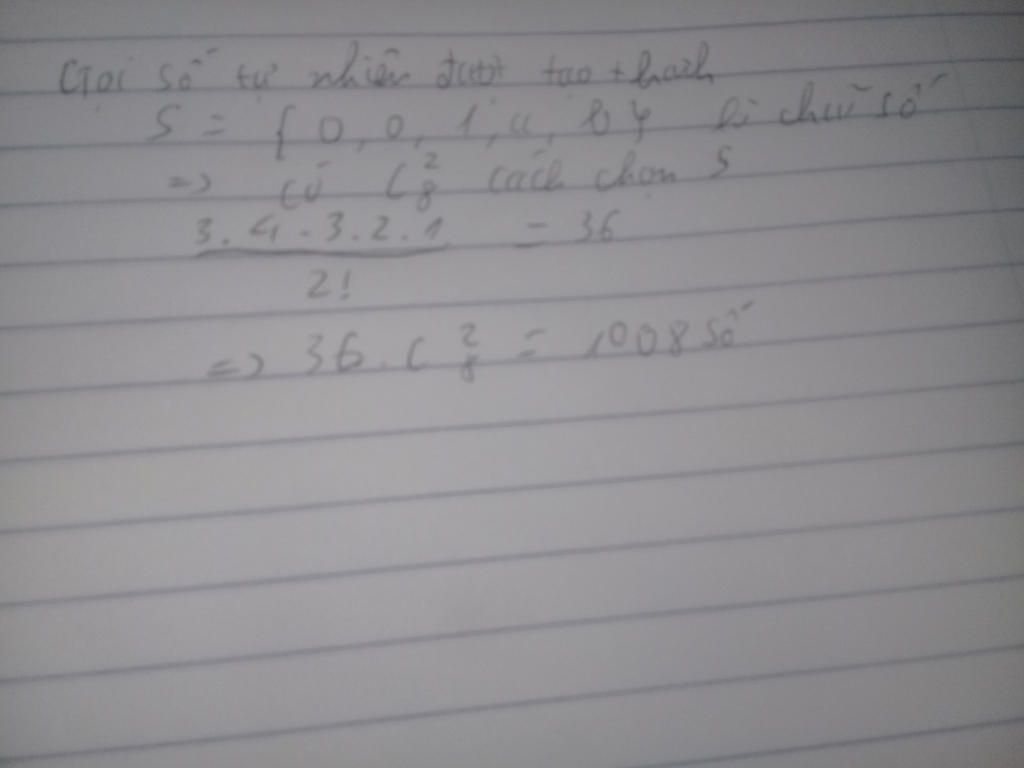 Gọi số tự nhiên được tạo thành
S = { 0, 0, 1, a, b } là chữ số
=> có C²₈ cách chọn S
3.4.3.2.1 / 2! = 36
=> 36. C²₈ = 1008 số